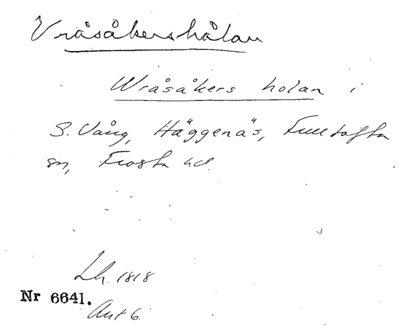 Vråsåkershålan
Wråsåkers holan i
S. Vång, Häggenäs, Fulltofta
sn, Frosta hd.
Lh. 1818
Nr 6641.
Akt 6.